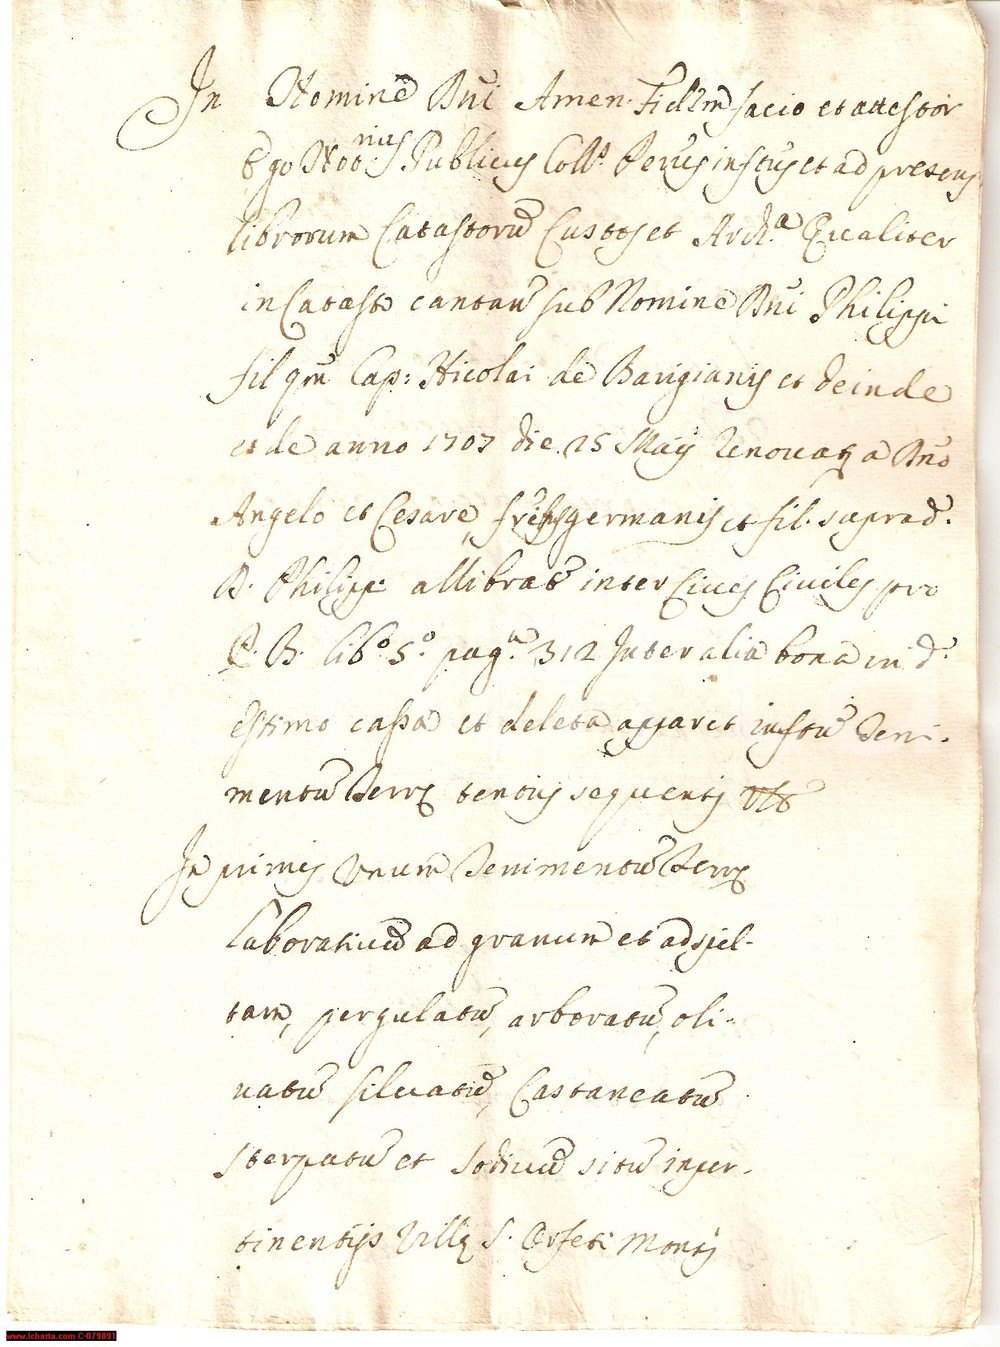 In Nomine Dñi Amen. Fidem facio et attestor
Ego Not:rius Publicus Coll:s Perus: infrus et ad presens
librorum Catastorũ Custos et Arch:a Qualiter
in Catasto cantan̄ sub Nomine Dñi Philippi
fil qm̃ Cap: Nicolai de Barigianis et deinde
et de anno 1707 die 25 Maij renovat a Dño
Angelo et Cesare, germanis et fil. suprad:
D. Philippi allibrat inter Cives Civiles pro
P. B. lib.o 5.o pag.a 312 Inter alia bona in d:
estimo cassa et deleta apparet infrũ Teni-
mentũ Terrę tentis sequentis Vlt
In primis Unum Tenimentũ Terrę
laborativũ ad granum et ad spel-
tam, pergulatũ, arboratũ, oli-
vatũ silvatũ, Castaneatũ
sterpatũ et sodivũ sitũ in per-
tinentijs Villę S. Orfeti Montis
www.icharta.com C-079891